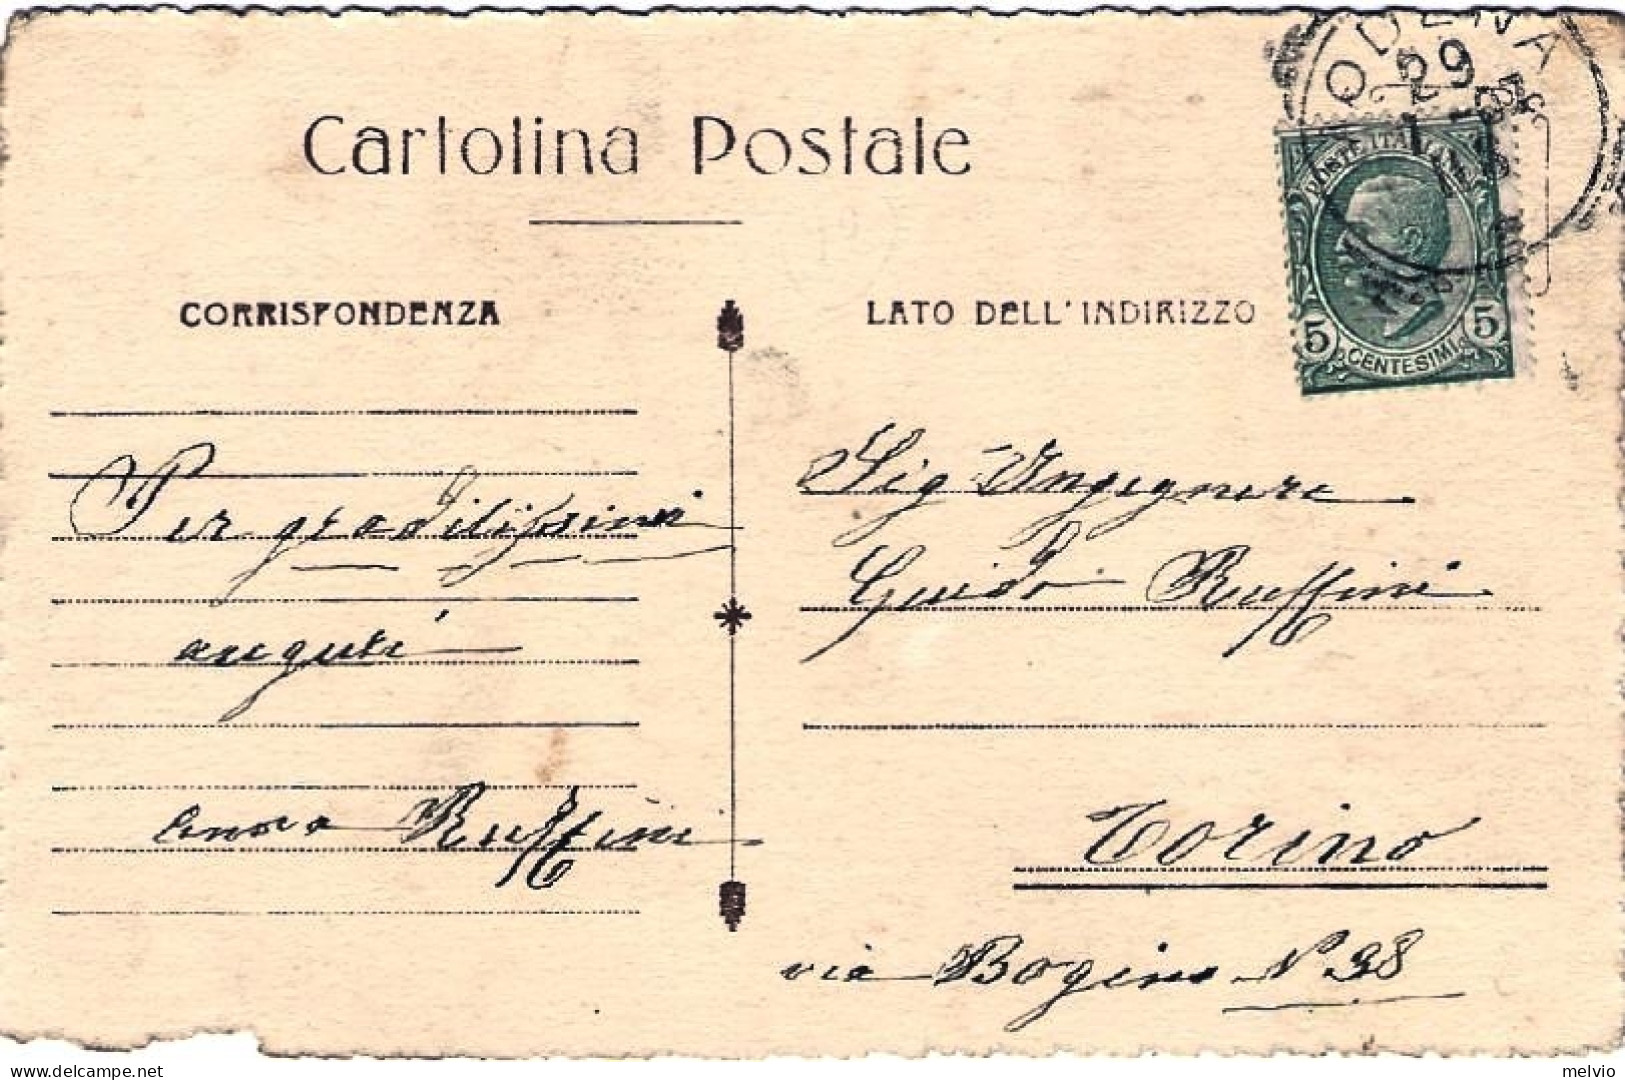 Cartolina Postale
CORRISPONDENZA
LATO DELL'INDIRIZZO
ODENA
29
POSTE ITALIANE
5 CENTESIMI 5
Per graditissimi
auguri
Ruffini
Sig Ingegnere
Guido Ruffini
Torino
via Bogino N 38
delcampe.net
melvio